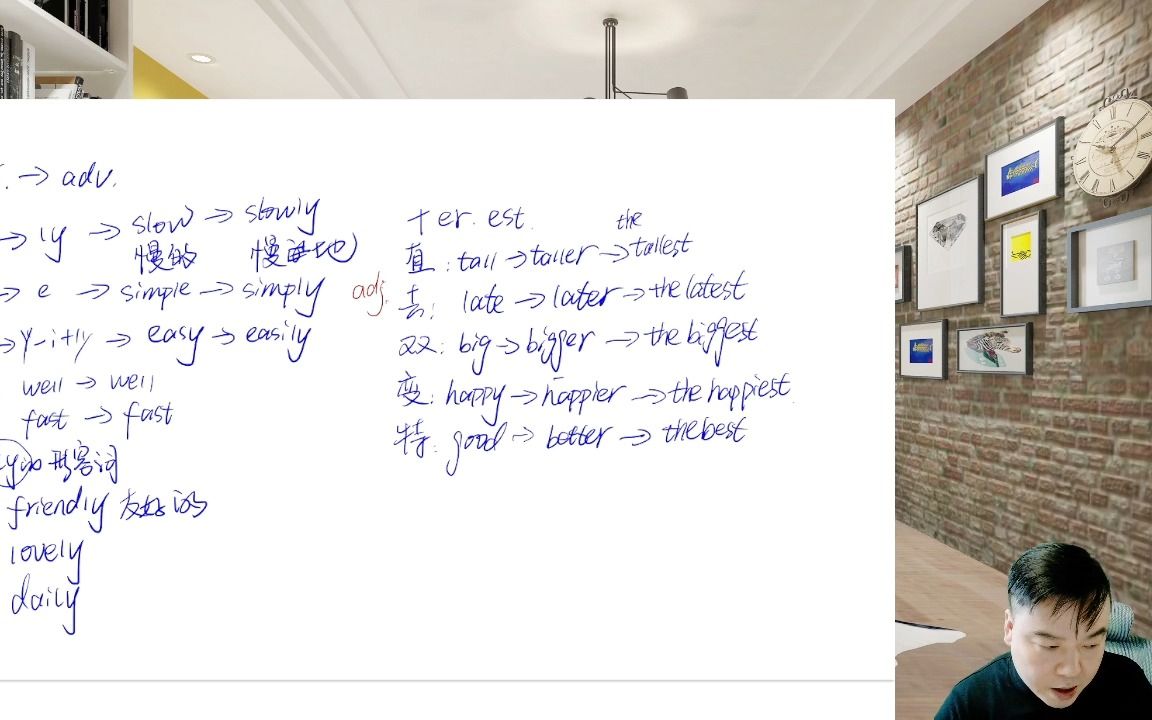 → adv.
→ ly → slow → slowly
慢的 慢地
→ e → simple → simply
→ y-i+ly → easy → easily
well → well
fast → fast
形容词
friendly 友好的
lovely
daily
adj.
+ er. est.
the
直: tall → taller → tallest
去: late → later → the latest
双: big → bigger → the biggest
变: happy → happier → the happiest
特: good → better → the best